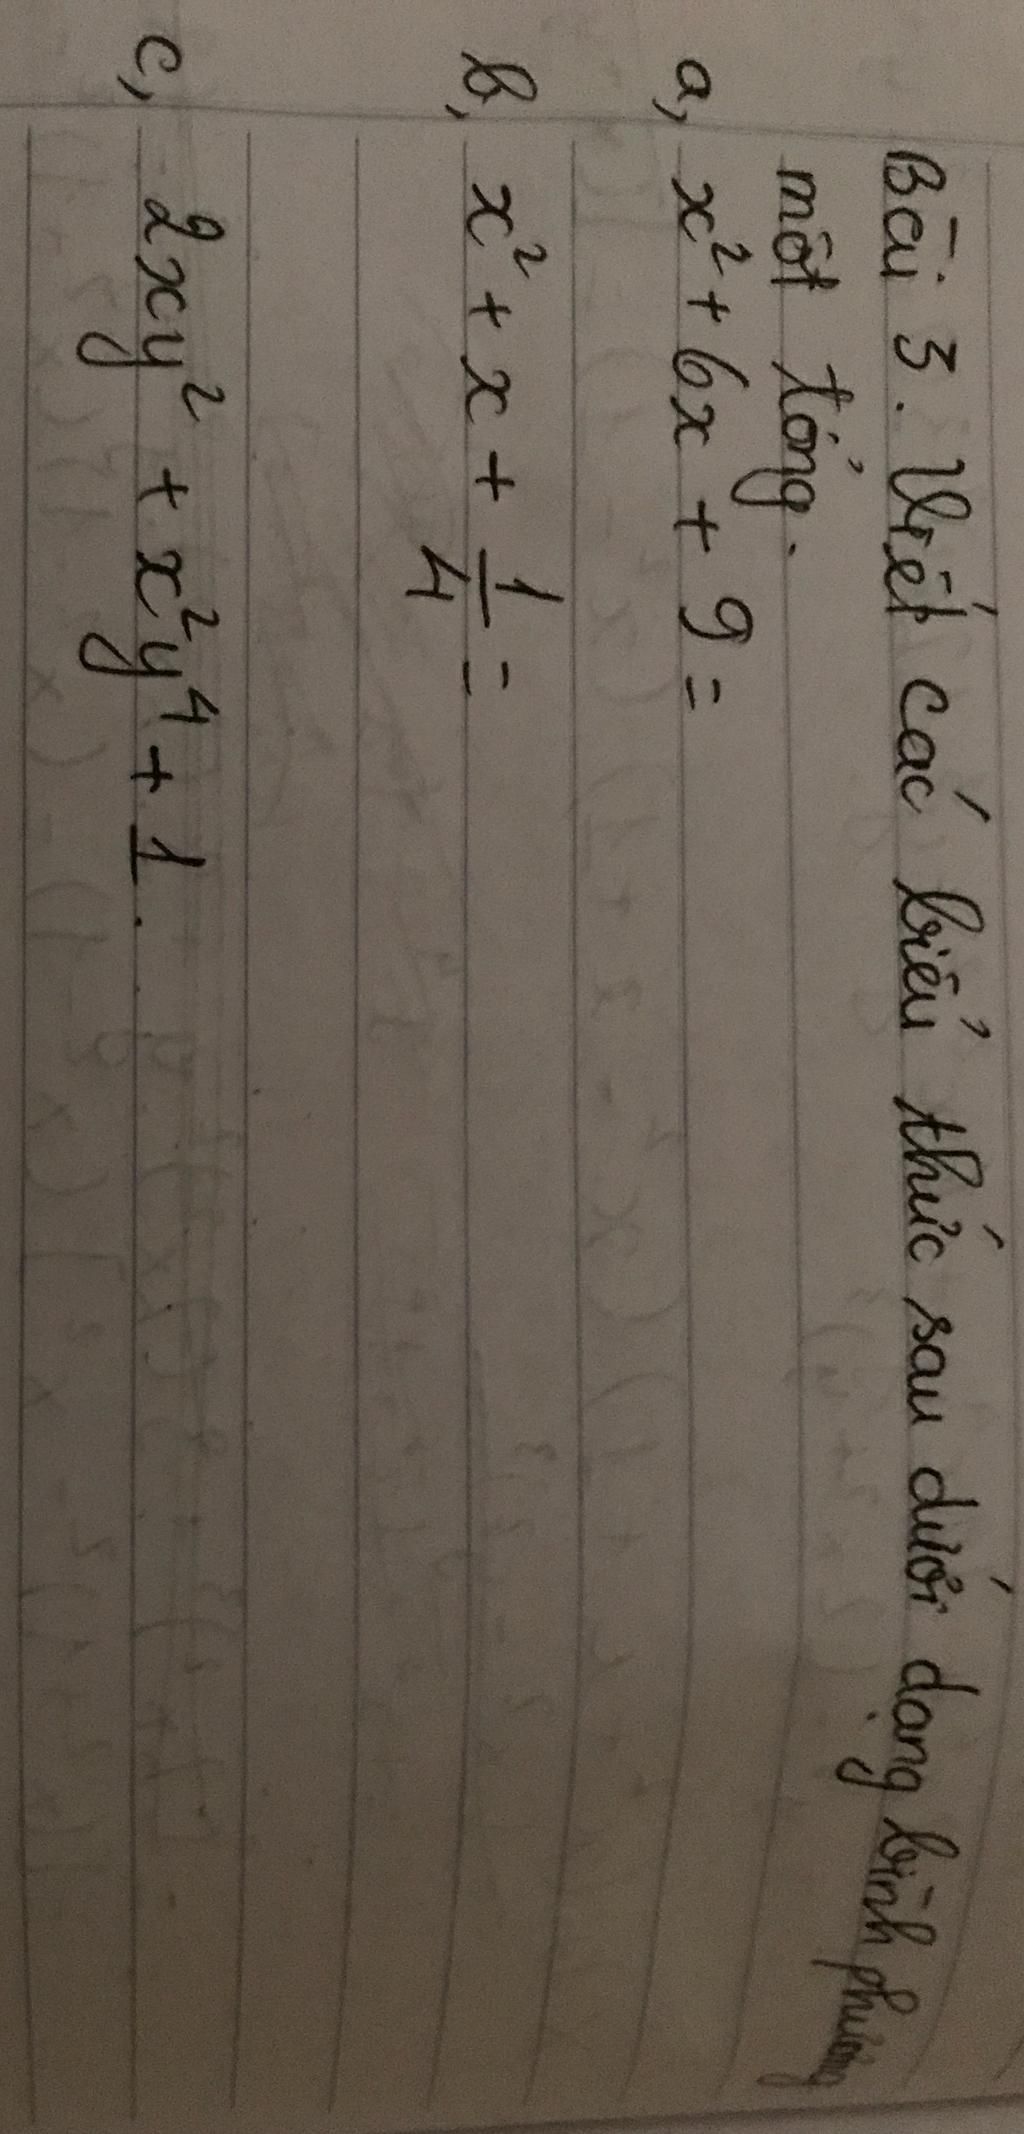 Bài 3. Viết các biểu thức sau dưới dạng bình phương
một tổng.
a, x² + 6x + 9 =
b, x² + x + 1/4 =
c, 2xy² + x²y⁴ + 1.